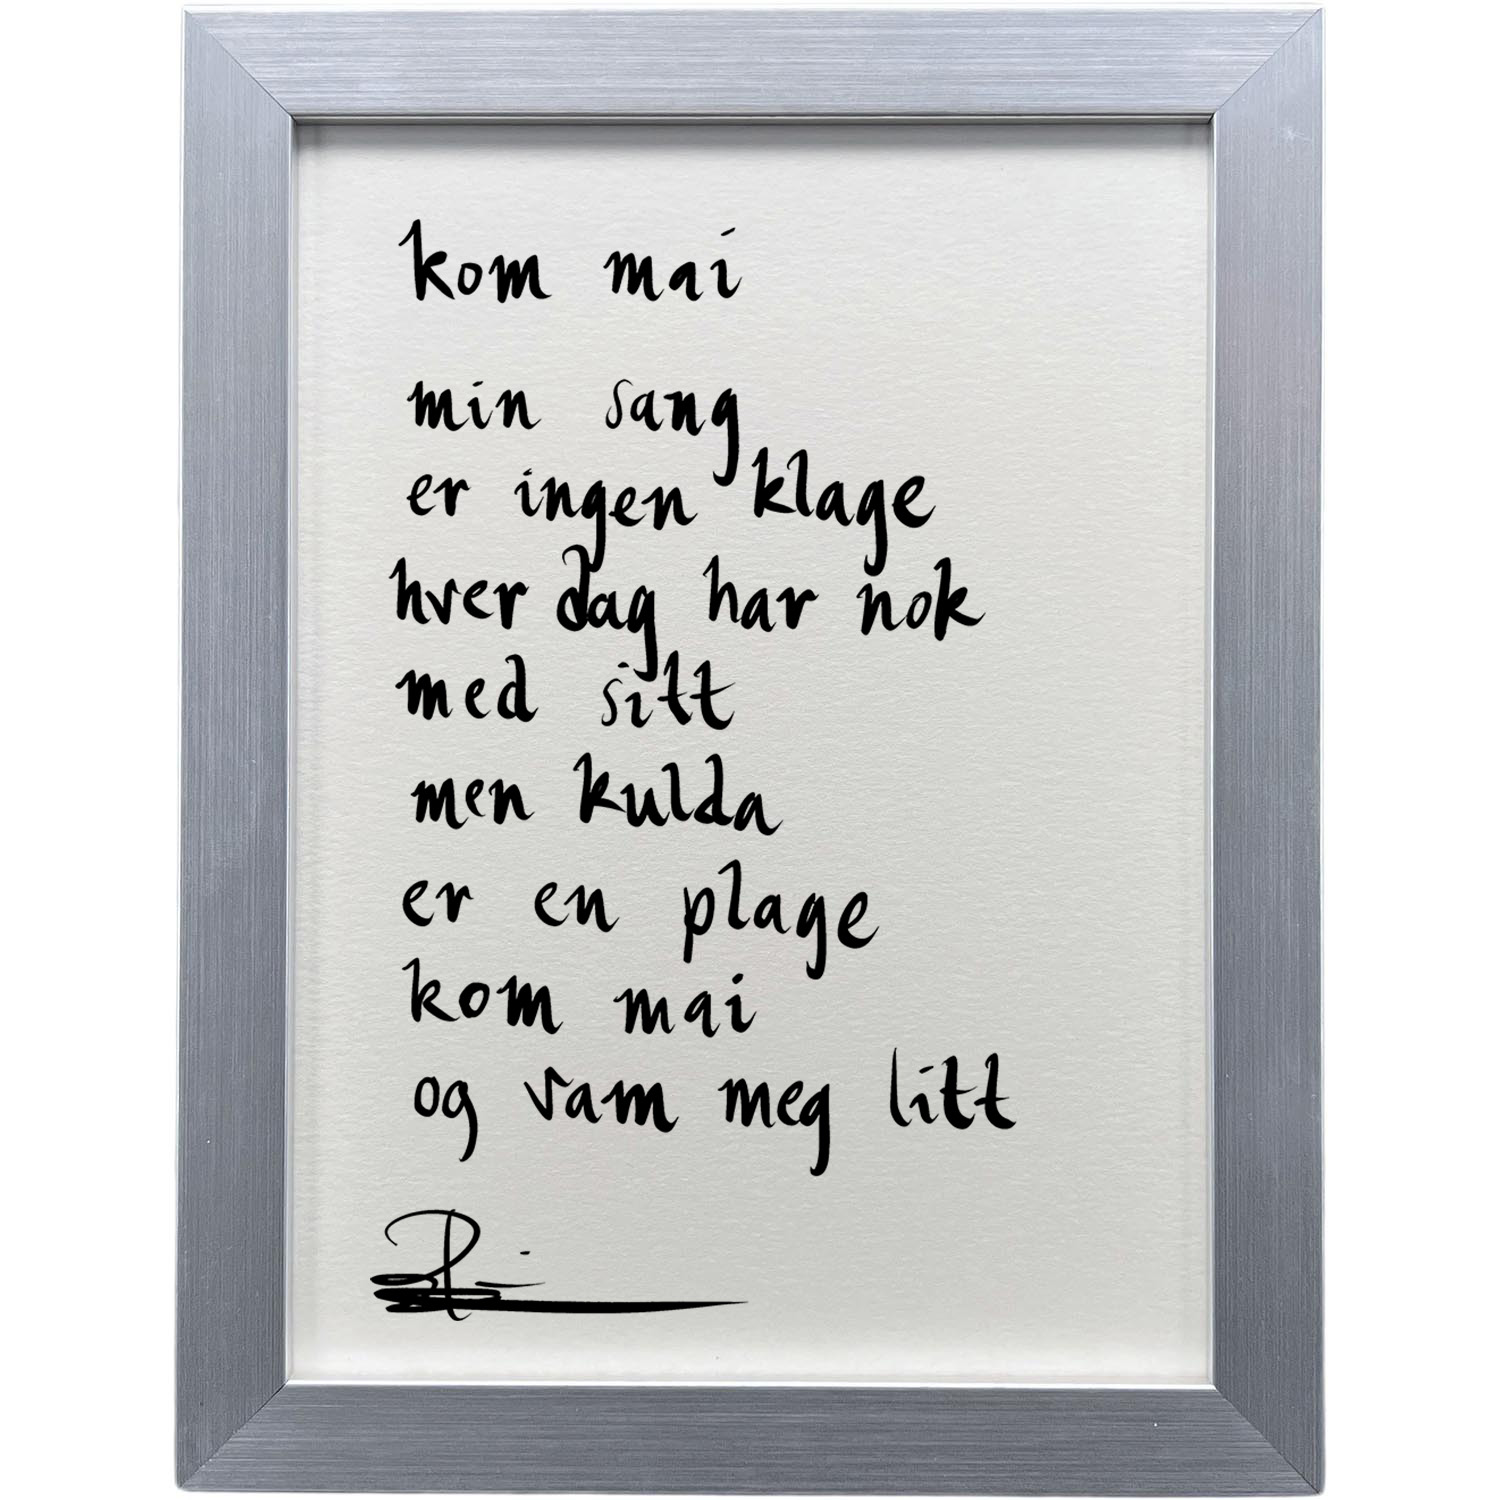 kom mai
min sang
er ingen klage
hver dag har nok
med sitt
men kulda
er en plage
kom mai
og vam meg litt